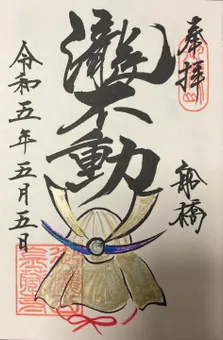 奉拝
船橋
瀧不動
令和五年五月五日